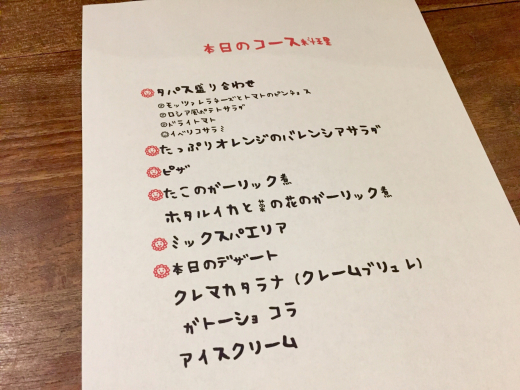 本日のコース料理
タパス盛り合わせ
◎モッツァレラチーズとトマトのピンチョス
◎ロシア風ポテトサラダ
◎ドライトマト
◎イベリコサラミ
たっぷりオレンジのバレンシアサラダ
ピザ
たこのガーリック煮
ホタルイカと菜の花のガーリック煮
ミックスパエリア
本日のデザート
クレマカタラナ(クレームブリュレ)
ガトーショコラ
アイスクリーム